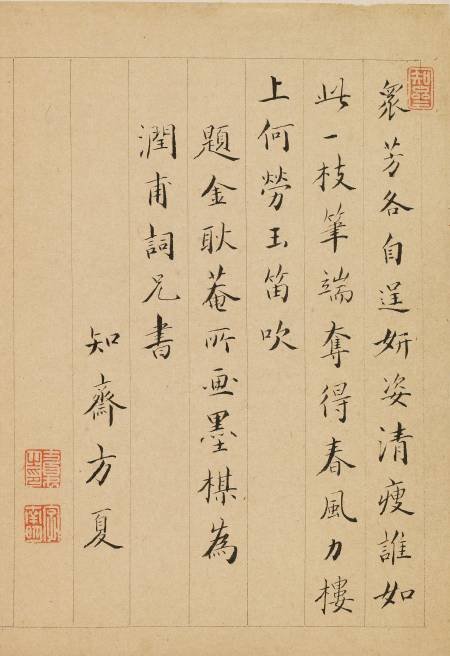 衆芳各自逞妍姿清瘦誰如
此一枝筆端奪得春風力樓
上何勞玉笛吹
題金耿菴所画墨楳為
潤甫詞兄書
知齋方夏